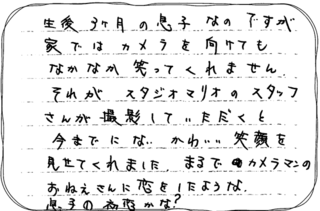 生後 3ヶ月 の息子 なの ですが
家では カメラ を 向けても
なかなか 笑ってくれません.
それが スタジオマリオ の スタッフ
さんが 撮影していただくと
今までにな、かわいい 笑顔を
見せてくれました. まるで カメラマンの
おねえさんに 恋をしたような.
息子の 初恋かな?